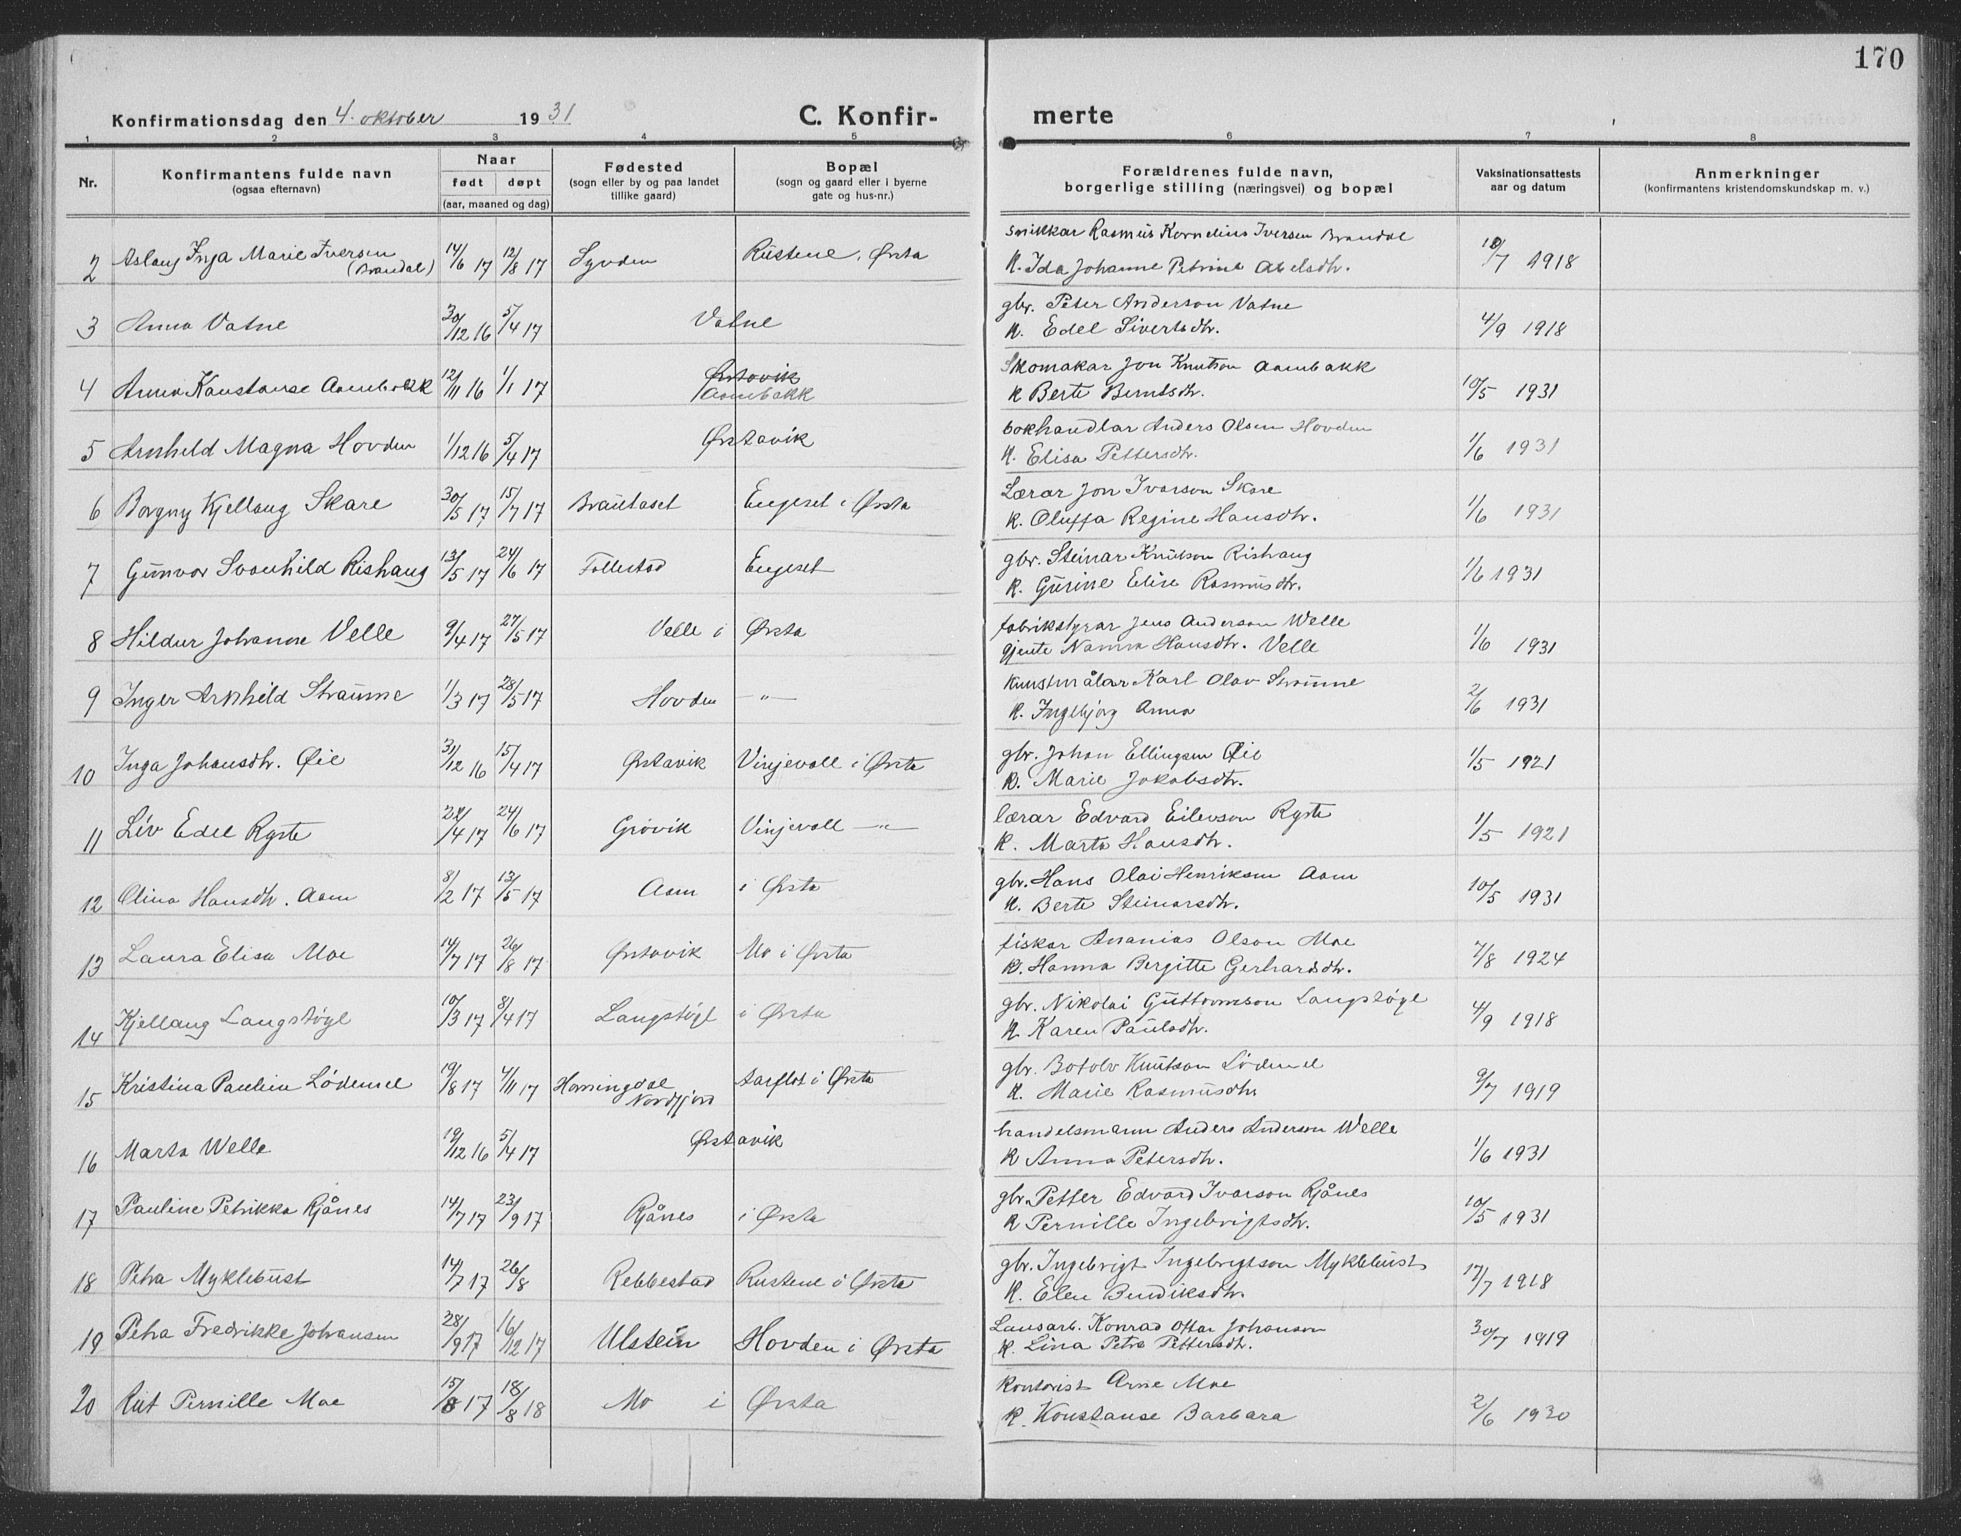 170
Konfirmationsdag den 4. oktober 1931 C. Konfir- merte
1 2 3 4 5 6 7 8
Nr. Konfirmantens fulde navn (ogsaa efternavn) Naar født døpt (aar, maaned og dag) Fødested (sogn eller by og paa landet tillike gaard) Bopæl (sogn og gaard eller i byerne gate og hus-nr.) Forældrenes fulde navn, borgerlige stilling (næringsvei) og bopæl Vaksinationsattests aar og datum Anmerkninger (konfirmantens kristendomskundskap m. v.)
2 Aslaug Inga Marie Iversen (Brandal) 14/6 17 12/8 17 Syvden Rustene, Ørsta snikkar Rasmus Kornelius Iversen Brandal
K. Ida Johanne Petrine Abelsdtr. /7 1918
3 Anna Vatne 30/12 16 5/4 17 Vatne gbr. Peter Anderson Vatne
K. Edel Sivertsdtr. 4/9 1918
4 Anna Konstanse Aambakk 12/11 16 1/1 17 Ørstavik Aambakk Skomakar Jon Knutson Aambakk
K Berte Berntsdtr. 10/5 1931
5 Arnhild Magna Hovden 1/12 16 5/4 17 Ørstavik bokhandlar Anders Olsen Hovden
K. Elisa Pettersdtr. 1/6 1931
6 Borgny Kjellaug Skare 30/5 17 15/7 17 Brautaset Engeset i Ørsta Lærar Jon Ivarson Skare
K. Oluffa Regine Hansdtr. 1/6 1931
7 Gunvor Svanhild Rishaug 13/5 17 24/6 17 Follestad Engeset gbr. Steinar Knutson Rishaug
K. Gurine Elise Rasmusdtr. 1/6 1931
8 Hildur Johanne Velle 9/4 17 27/5 17 Velle i Ørsta fabrikstyrar Jens Anderson Welle
gjente Nanna Hansdtr. Velle 1/6 1931
9 Inger Arnhild Straume 1/3 17 28/5 17 Hovden –"– Kunstmålar Karl Olav Straume
K. Ingebjørg Anna 2/6 1931
10 Inga Johansdtr. Øie 31/12 16 15/4 17 Ørstavik Vinjevoll i Ørsta gbr. Johan Ellingsen Øie
K. Marie Jakobsdtr. 1/5 1921
11 Liv Edel Ryste 22/4 17 24/6 17 Grøvik Vinjevoll –"– lærar Edvard Eilevson Ryste
K. Marta Hansdtr. 1/5 1921
12 Olina Hansdtr. Aam 8/2 17 13/5 17 Aam i Ørsta gbr. Hans Olai Henriksen Aam
K. Berte Steinarsdtr. 10/5 1931
13 Laura Elisa Moe 14/7 17 26/8 17 Ørstavik Mo i Ørsta fiskar Ananias Olson Moe
K. Hanna Bergitte Gerhardsdtr. 7/8 1924
14 Kjellaug Langstøyl 10/3 17 8/4 17 Langstøyl i Ørsta gbr. Nikolai Guttormson Langstøyl
K Karen Paulsdtr. 4/9 1918
15 Kristina Paulin Lødemel 19/8 17 4/11 17 Hornindal Nordfjord Aarflot i Ørsta gbr. Botolv Knutson Lødemel
K. Marie Rasmusdtr 9/7 1919
16 Marta Welle 19/12 16 5/4 17 Ørstavik handelsmann Anders Anderson Welle
K Anna Petersdtr. 1/6 1931
17 Pauline Petrikka Rjånes 14/7 17 23/9 17 Rjånes i Ørsta gbr. Petter Edvard Ivarson Rjånes
K Pernille Ingebrigtsdtr. 10/5 1931
18 Petra Myklebust 14/7 17 26/8 Rebbestad Rustene i Ørsta gbr. Ingebrigt Ingebrigtson Myklebust
K. Elen Bendiksdtr. 17/7 1918
19 Petra Fredrikke Johansen 28/9 17 16/12 17 Ulstein Hovden i Ørsta Lausarb. Konrad Ottar Johanson
K. Lina Petra Pettersdtr. 30/7 1919
20 Rut Pernille Moe 15/8 17 18/8 18 Mo i Ørsta Kontorist Arne Moe
K. Konstanse Barbara 2/6 1930